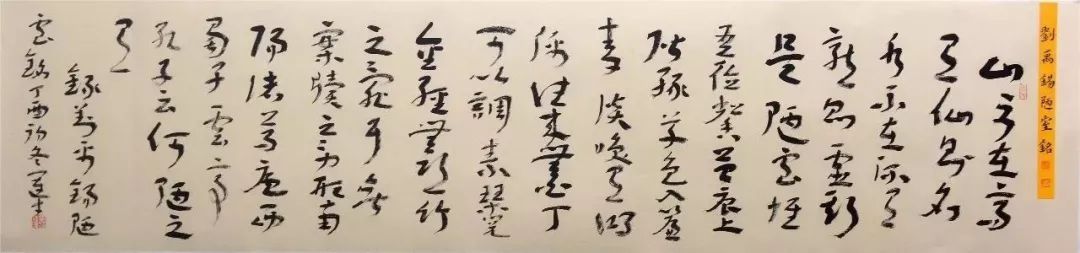 劉禹錫陋室銘
山不在高
有仙則名
水不在深有
龍則靈斯
是陋室惟
吾德馨苔痕上
階綠草色入簾
青談笑有鴻
儒往來無白丁
可以調素琴閱
金經無絲竹
之亂耳無
案牘之勞形南
陽諸葛廬西
蜀子雲亭
孔子云何陋之
有
錄劉禹錫陋
室銘丁酉初冬